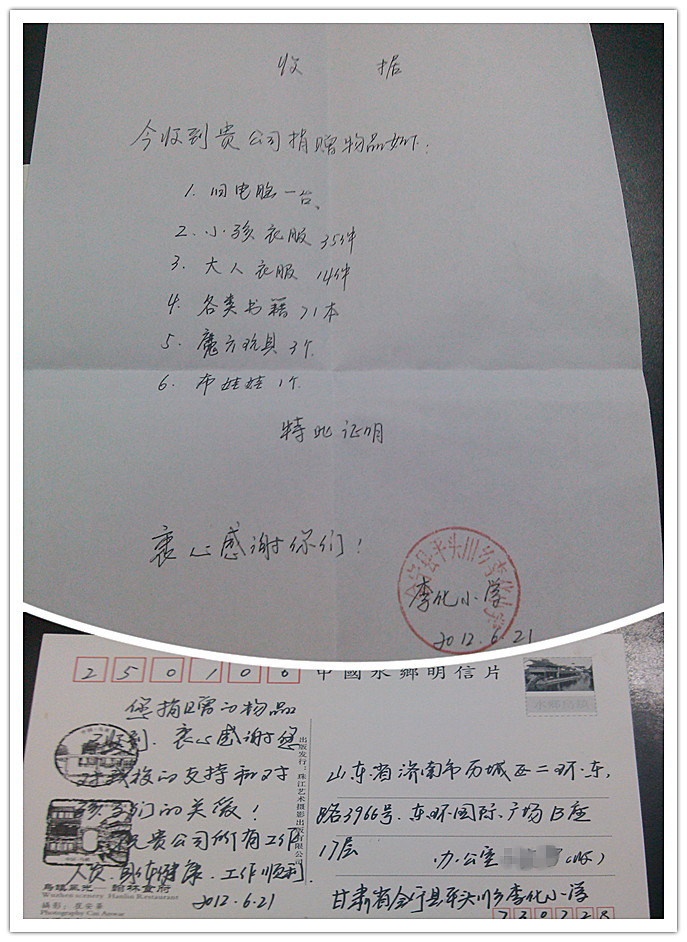 收 据
今收到贵公司捐赠物品如下:
1. 旧电脑一台、
2. 小孩衣服 35件
3. 大人衣服 14件
4. 各类书籍 71本
5. 魔方玩具 3个
6. 布娃娃 1个
特此证明
衷心感谢你们!
会宁县平头川乡李化小学
李化小学
2012.6.21
250106
中國水鄉明信片
您捐赠的物品
已收到、衷心感谢您
对我校的支持和对
孩子们的关爱!
祝贵公司所有工作
人员:身体健康、工作顺利
2012.6.21
出版发行:珠江艺术摄影出版有限公司
山东省济南市历城区二环东
路3966号.东环国际广场B座
17层 办公室
甘肃省会宁县平头川乡李化小学
730728
烏鎮風光——翰林金府
Wuzhen scenery Hanlin Restaurant
攝影:
Photography Cao Anwar